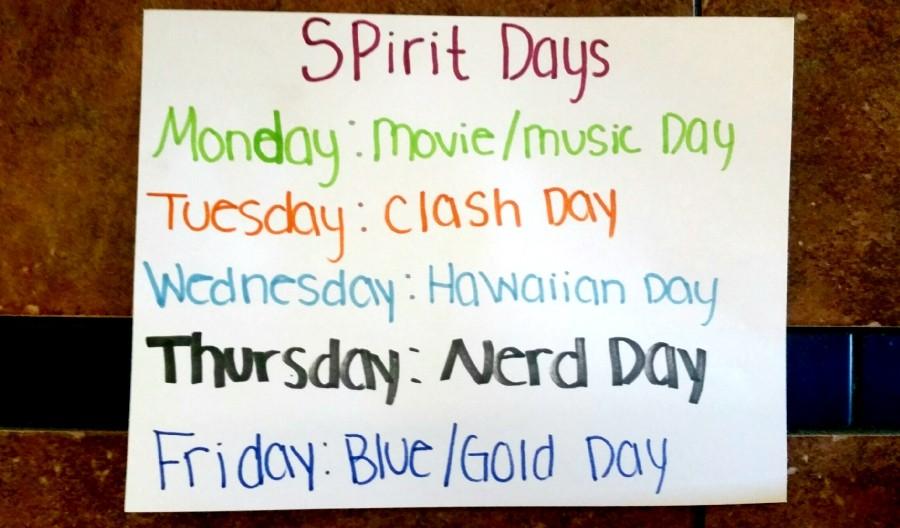 Spirit Days
Monday: Movie/music Day
Tuesday: Clash Day
Wednesday: Hawaiian Day
Thursday: Nerd Day
Friday: Blue/Gold Day